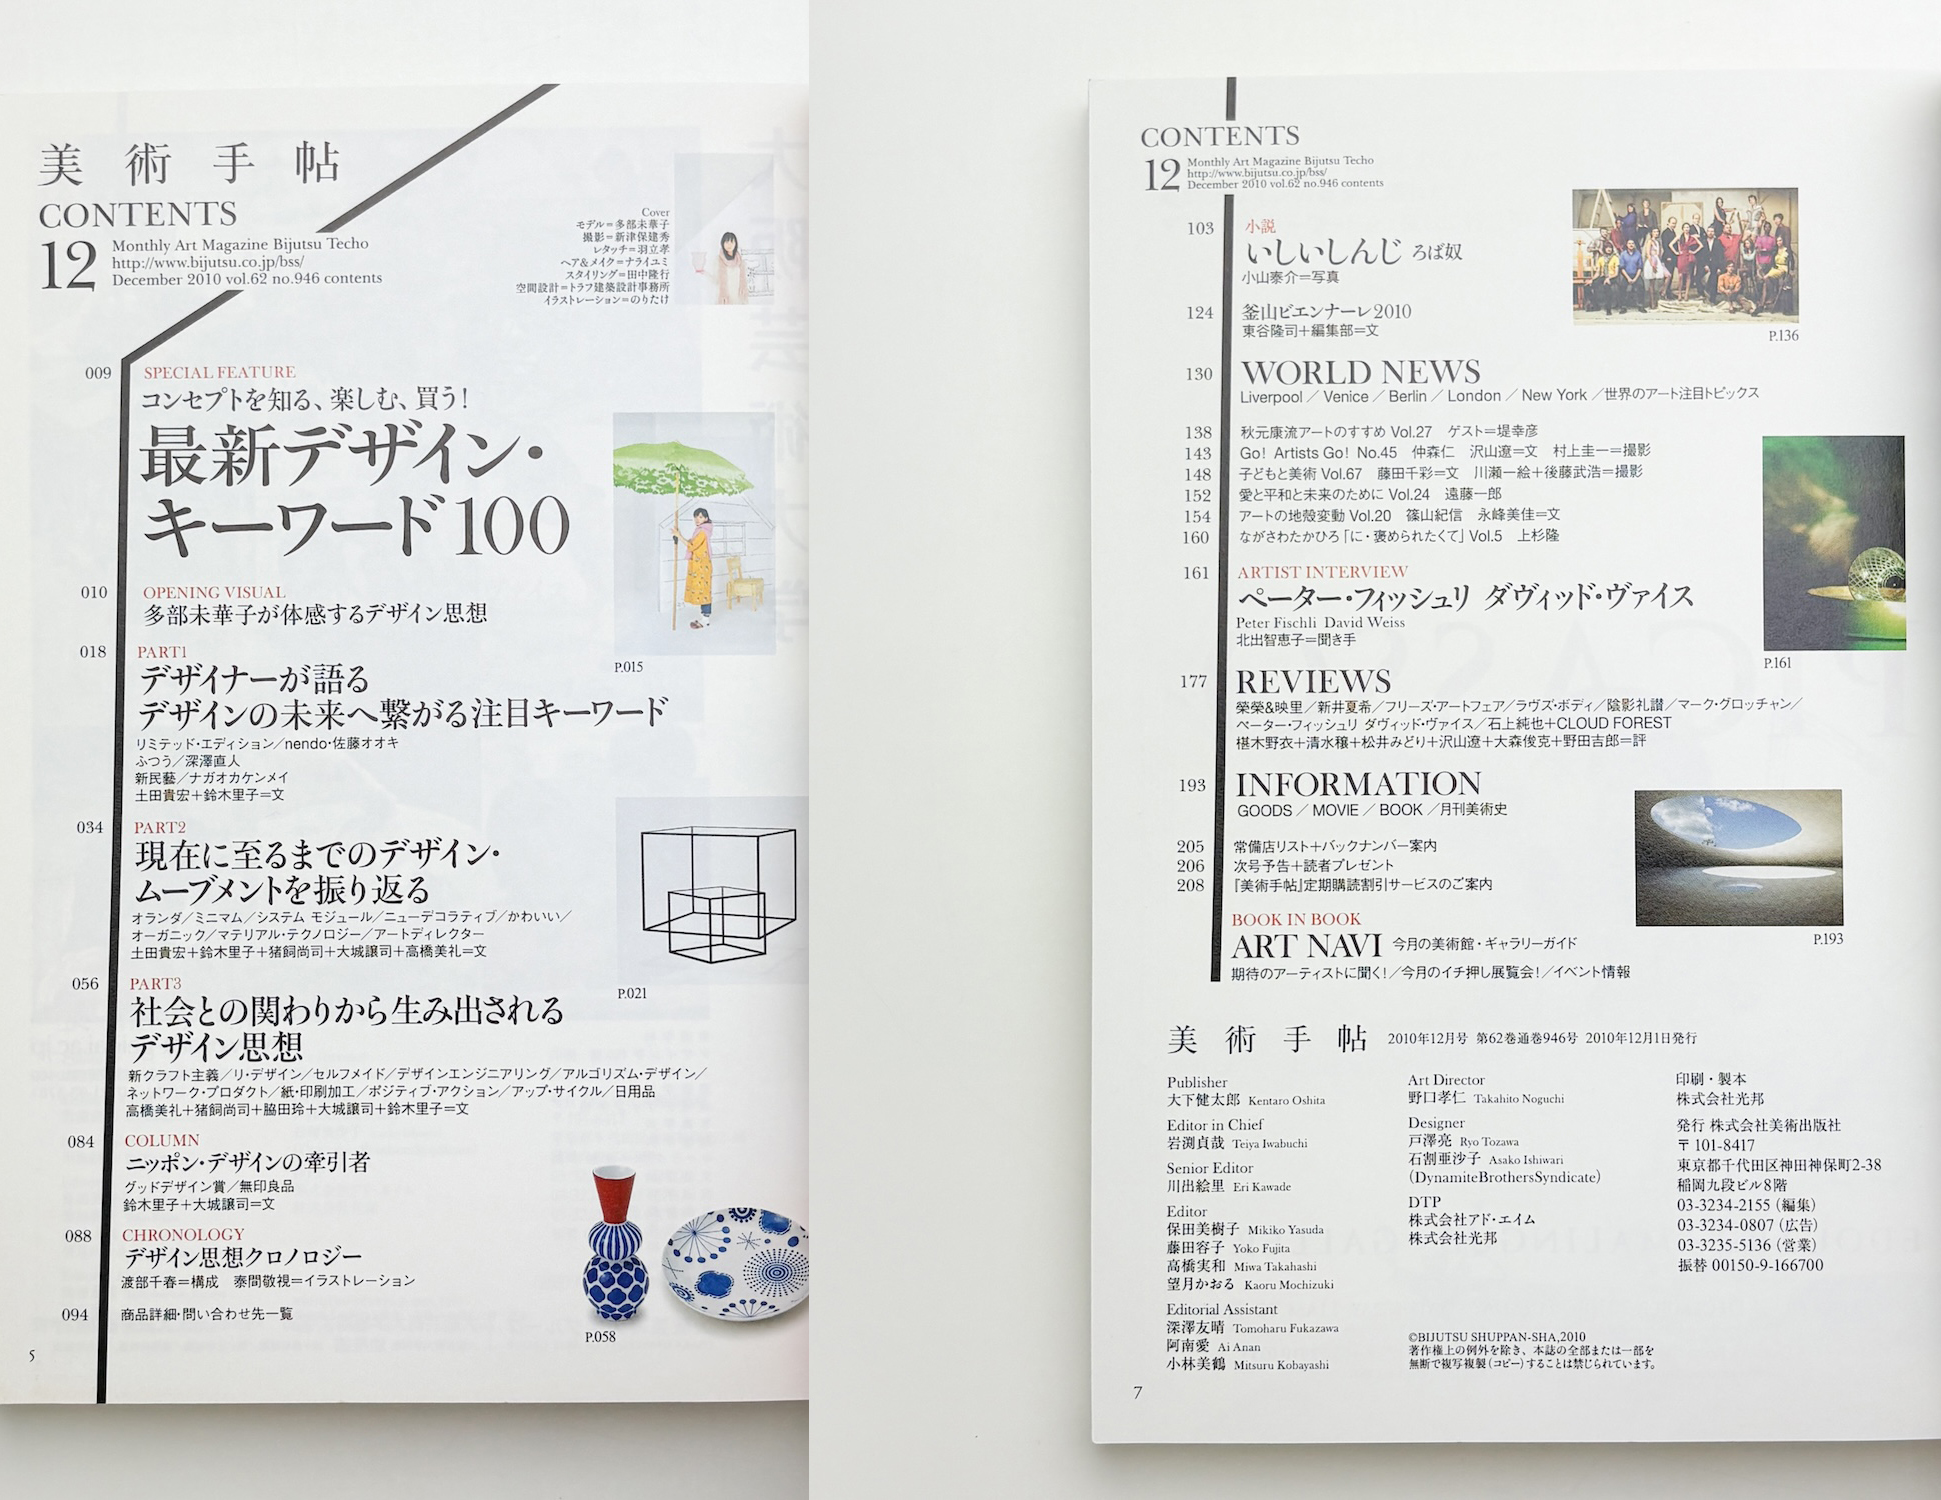 美術手帖
CONTENTS
12
Monthly Art Magazine Bijutsu Techo
http://www.bijutsu.co.jp/bss/
December 2010 vol.62 no.946 contents
Cover
モデル=多部未華子
撮影=新津保建秀
レタッチ=羽立孝
ヘア&メイク=ナライユミ
スタイリング=田中隆行
空間設計=トラフ建築設計事務所
イラストレーション=のりたけ
009 SPECIAL FEATURE
コンセプトを知る、楽しむ、買う!
最新デザイン・
キーワード100
010 OPENING VISUAL
多部未華子が体感するデザイン思想
P.015
018 PART1
デザイナーが語る
デザインの未来へ繋がる注目キーワード
リミテッド・エディション/nendo・佐藤オオキ
ふつう/深澤直人
新民藝/ナガオカケンメイ
土田貴宏+鈴木里子=文
034 PART2
現在に至るまでのデザイン・
ムーブメントを振り返る
オランダ/ミニマム/システム モジュール/ニューデコラティブ/かわいい/
オーガニック/マテリアル・テクノロジー/アートディレクター
土田貴宏+鈴木里子+猪飼尚司+大城譲司+高橋美礼=文
P.021
056 PART3
社会との関わりから生み出される
デザイン思想
新クラフト主義/リ・デザイン/セルフメイド/デザインエンジニアリング/アルゴリズム・デザイン/
ネットワーク・プロダクト/紙・印刷加工/ポジティブ・アクション/アップ・サイクル/日用品
高橋美礼+猪飼尚司+脇田玲+大城譲司+鈴木里子=文
084 COLUMN
ニッポン・デザインの牽引者
グッドデザイン賞/無印良品
鈴木里子+大城譲司=文
088 CHRONOLOGY
デザイン思想クロノロジー
渡部千春=構成 泰間敬視=イラストレーション
094 商品詳細・問い合わせ先一覧
P.058
5
CONTENTS
12
Monthly Art Magazine Bijutsu Techo
http://www.bijutsu.co.jp/bss/
December 2010 vol.62 no.946 contents
103 小説
いしいしんじ ろば奴
小山泰介=写真
124 釜山ビエンナーレ2010
東谷隆司+編集部=文
P.136
130 WORLD NEWS
Liverpool / Venice / Berlin / London / New York /世界のアート注目トピックス
138 秋元康流アートのすすめ Vol.27 ゲスト=堤幸彦
143 Go! Artists Go! No.45 仲森仁 沢山遼=文 村上圭一=撮影
148 子どもと美術 Vol.67 藤田千彩=文 川瀬一絵+後藤武浩=撮影
152 愛と平和と未来のために Vol.24 遠藤一郎
154 アートの地殻変動 Vol.20 篠山紀信 永峰美佳=文
160 ながさわたかひろ「に・褒められたくて」Vol.5 上杉隆
161 ARTIST INTERVIEW
ペーター・フィッシュリ ダヴィッド・ヴァイス
Peter Fischli David Weiss
北出智恵子=聞き手
P.161
177 REVIEWS
榮榮&映里/新井夏希/フリーズ・アートフェア/ラヴズ・ボディ/陰影礼讃/マーク・グロッチャン/
ペーター・フィッシュリ ダヴィッド・ヴァイス/石上純也+CLOUD FOREST
椹木野衣+清水穣+松井みどり+沢山遼+大森俊克+野田吉郎=評
193 INFORMATION
GOODS / MOVIE / BOOK /月刊美術史
205 常備店リスト+バックナンバー案内
206 次号予告+読者プレゼント
208 『美術手帖』定期購読割引サービスのご案内
P.193
BOOK IN BOOK
ART NAVI 今月の美術館・ギャラリーガイド
期待のアーティストに聞く!/今月のイチ押し展覧会!/イベント情報
美術手帖 2010年12月号 第62巻通巻946号 2010年12月1日発行
Publisher
大下健太郎 Kentaro Oshita
Editor in Chief
岩渕貞哉 Teiya Iwabuchi
Senior Editor
川出絵里 Eri Kawade
Editor
保田美樹子 Mikiko Yasuda
藤田容子 Yoko Fujita
高橋実和 Miwa Takahashi
望月かおる Kaoru Mochizuki
Editorial Assistant
深澤友晴 Tomoharu Fukazawa
阿南愛 Ai Anan
小林美鶴 Mitsuru Kobayashi
Art Director
野口孝仁 Takahito Noguchi
Designer
戸澤亮 Ryo Tozawa
石割亜沙子 Asako Ishiwari
(DynamiteBrothersSyndicate)
DTP
株式会社アド・エイム
株式会社光邦
印刷・製本
株式会社光邦
発行 株式会社美術出版社
〒101-8417
東京都千代田区神田神保町2-38
稲岡九段ビル8階
03-3234-2155(編集)
03-3234-0807(広告)
03-3235-5136(営業)
振替 00150-9-166700
©BIJUTSU SHUPPAN-SHA,2010
著作権上の例外を除き、本誌の全部または一部を
無断で複写複製(コピー)することは禁じられています。
7